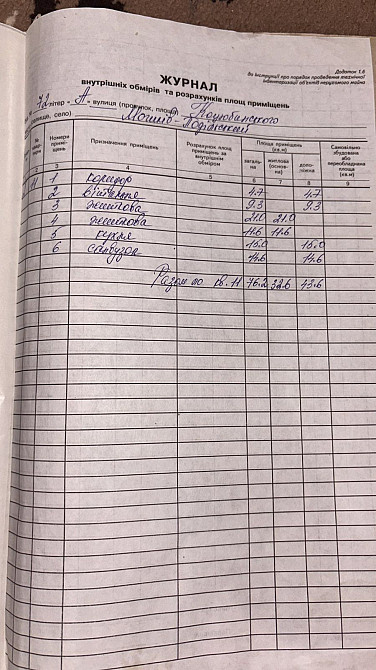 Додаток 1.6
до Інструкції про порядок проведення технічної
інвентаризації об'єктів нерухомого майна
ЖУРНАЛ
внутрішніх обмірів та розрахунків площ приміщень
72 літер " А " вулиця (провулок, площа) Коцюбинського
село) Могилів - Подільський
Номери приміщень
Призначення приміщень
Розрахунок площ приміщень за внутрішнім обміром
Площа приміщень (кв.м)
загальна
житлова (основна)
допоміжна
Самовільно збудована або переобладнана площа (кв.м)
2 3 4 5 6 7 8 9
11 1 коридор 4.7 4.7
2 9.3 9.3
3 житлова 21.0 21.0
4 житлова 11.6 11.6
5 кухня 15.0 15.0
6 санвузол 14.6 14.6
Разом по кв. 11 76.2 32.6 43.6